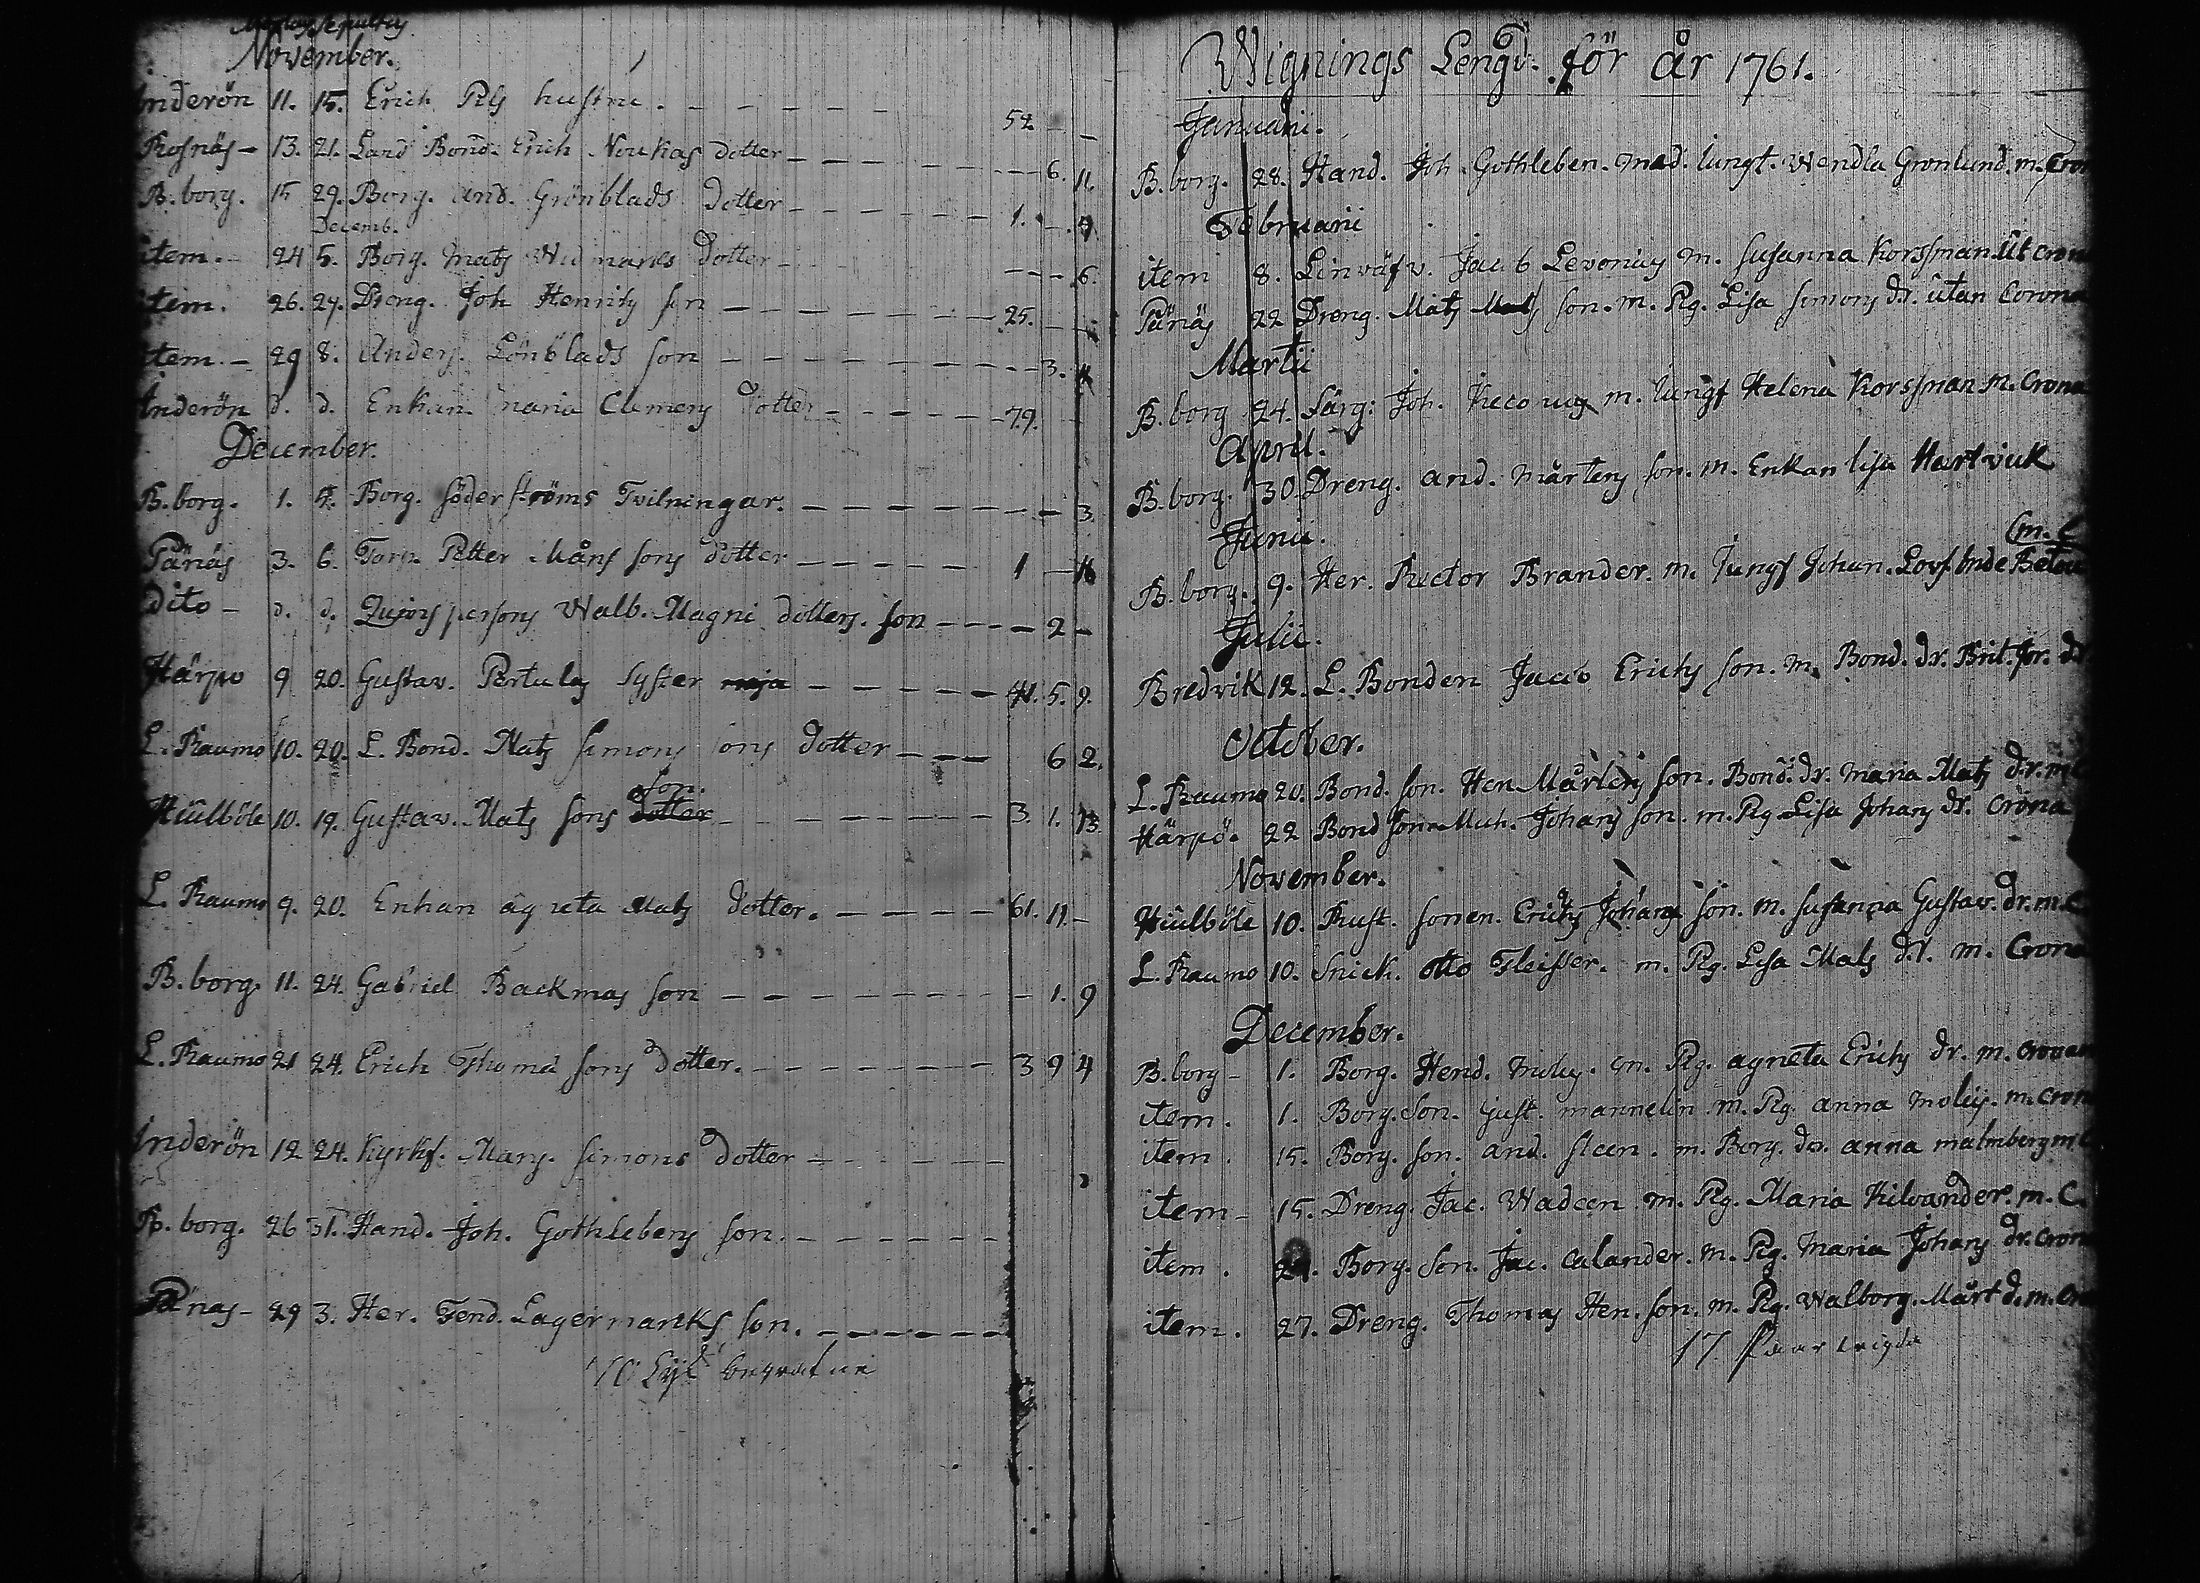 November.
Inderön 11. 15. Erich Påls hustru. 52 – –
Rosnäs 13. 21. Land Bond. Erich Noukas dotter 6. 11.
B. borg. 15 29. Borg. And. Grönblads dotter 1. – 9
Decemb.
item. 24 5. Borg. Mats Widmarks dotter 6.
item. 26. 27. Dreng. Joh Henrichs son 25.
item 29 8. Anders Lönblads son 3.
Inderön d. d. Enkan maria Clemens dotter 79.
December.
B. borg. 1. Borg. Söderströms Tvilningar. 3.
Pänäs 3. 6. Torp. Petter Måns sons dotter 1
dito d. d. Walb. Magni dotters son 2 –
Härpö 9 20. Gustav. Pertulas syster 5. 9.
L. Raumo 10. 20. L. Bond. Mats Simons sons dotter 6 2.
son.
Hiulböle 10. 19. Gustav. Mats sons dotter 3. 1. 13.
L. Raumo 9. 20. Enkan agneta Mats dotter. 61. 11 –
B. borg. 11. 24. Gabriel Backmas son 1. 9
L. Raumo 21 24. Erich Thoma sons dotter. 3 9 4
Inderön 12 24. Kyrkf. Marg. Simons dotter
B. borg. 26 31. Hand. Joh. Gothlebens son.
Pänas 29 3. Her. Fend. Lagermarks son.
70 Lijk begrafne
Wignings Lengd. för år 1761.
Januarii.
B. borg. 28. Hand. Joh. Gothleben. med. Jungf. Wendla Grönlund. m. Cron
Februarii
item 8. Linväfv. Jacob Levonius m. Susanna Korssman. Ut cron
Pänäs 22 Dreng. Mats Mats son. m. Pig. Lisa Simons dr. utan Corona
Martii
B. borg 24. Färg: Joh. m. Jungf Helena Korssman m. Crona
April.
B. borg. 30 Dreng. And. Mårtens son. m. Enkan Lisa Hartvick
Junii.
(m. C
B. borg. 9. Her. Rector Brander. m. Jungf Johan. Lovs
Julii.
Bredvik 12. L. Bonden Jacob Erichs son. m. Bond. dr. Brit.
October.
L. Raumo 20. Bond. son. Hen Mårtens son. Bond. dr. Maria Mats dr. m C
Härpö. 22 Bond son Mich. Johans son. m. Pig Lisa Johans dr. Crona
November.
Hiulböle 10. Rust. sonen. Erich Johans son. m. Susanna Gustav. dr. m. C
L. Raumo 10. Snick. Otto Fleisser. m. Pig. Lisa Mats dr. m. Crona
December.
B. borg 1. Borg. Hend. m. Pig. agneta Erichs dr. m. cronan
item. 1. Borg. Son. Gust. mannelin m. Pig. anna molijs. m. cron
item. 15. Borg. Son. And. Steen. m. Borg. dr. anna malmberg m C
item 15. Dreng. Jac. Wadeen m. Pig. Maria Kilvander. m. C.
item. Borg. Son. Jac. Calander. m. Pig. Maria Johans dr. cron
item. 27. Dreng. Thomas Hen. son. m. Pig. Walborg. Mårt d. m. Cro
17 Paar wigda